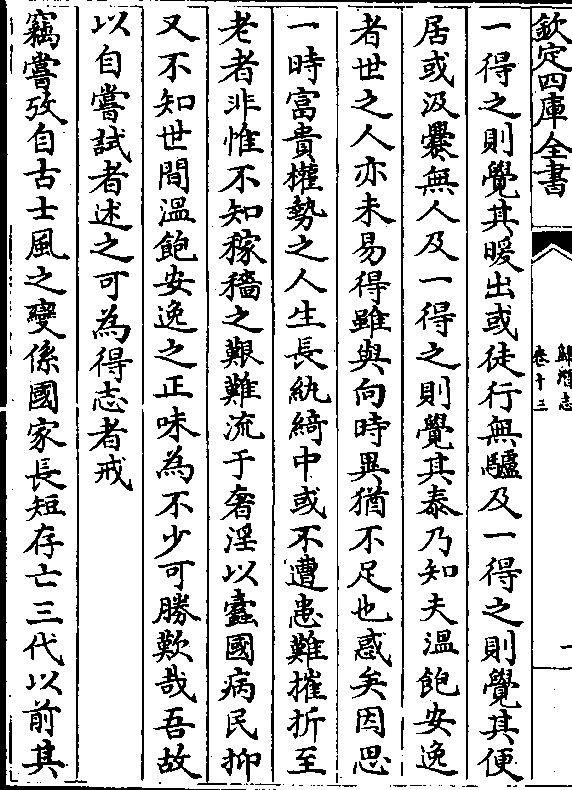 欽定四庫全書
歸潛志
卷十三
一
一得之則覺其暖出或徒行無驢及一得之則覺其便
居或汲爨無人及一得之則覺其泰乃知夫溫飽安逸
者世之人亦未易得雖與向時異猶不足也惑矣因思
一時富貴權勢之人生長紈綺中或不遭患難摧折至
老者非惟不知稼穡之艱難流于奢淫以蠧國病民抑
又不知世間溫飽安逸之正味為不少可勝歎哉吾故
以自嘗試者述之可為得志者戒
竊嘗攷自古士風之變係國家長短存亡三代以前其